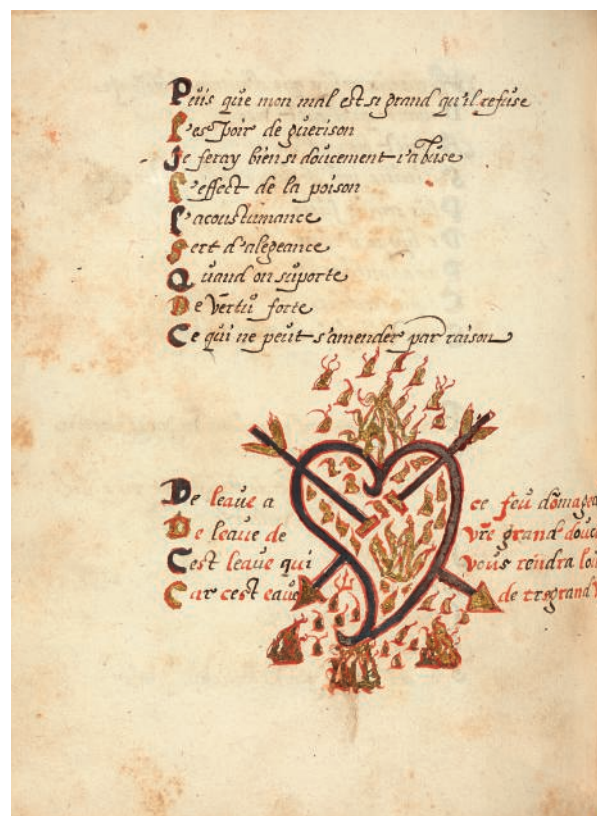 Peüis que mon mal est si grand qu'il refuse
L'espoir de guerison
Je feray bien si doücement s'abüse
L'effect de la poison
L'acoustumance
Sert d'alegeance
Quand on suporte
De Vertü forte
Ce qui ne peüt s'amender par raison
De leaüe a ce feü domagea
De leaüe de vr̄e grand doüc
C'est leaüe qui voüs rendra
Car c'est eaüe de tresgrand